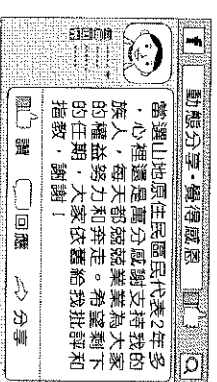 f 動態分享・覺得感恩
當選山地原住民國民代表2年多
，心裡還是萬分感謝支持我的
族人，每天都兢兢業業為大家
的權益努力和奔走。希望剩下
的任期，大家依舊給我批評和
指教，謝謝！
讚 回應 分享